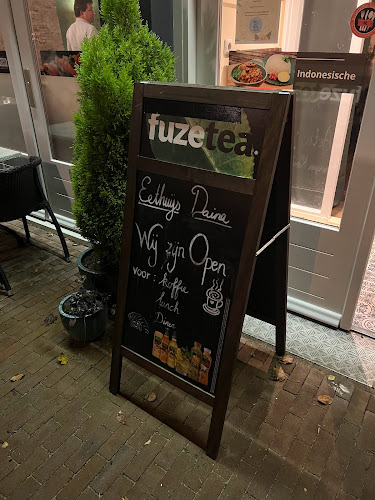 fuzetea.
Eethuys Daina
Wij zijn Open
voor: koffie
lunch
Diner
Indonesische